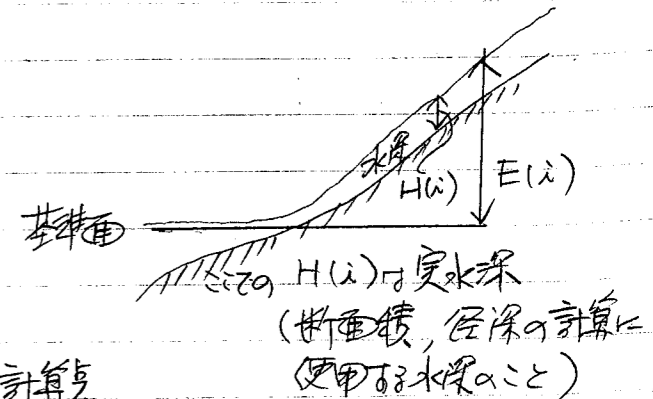 水深
H(i)
E(i)
基準面
ここでの H(i)は実水深
(断面積, 径深の計算に
使用する水深のこと)
計算点